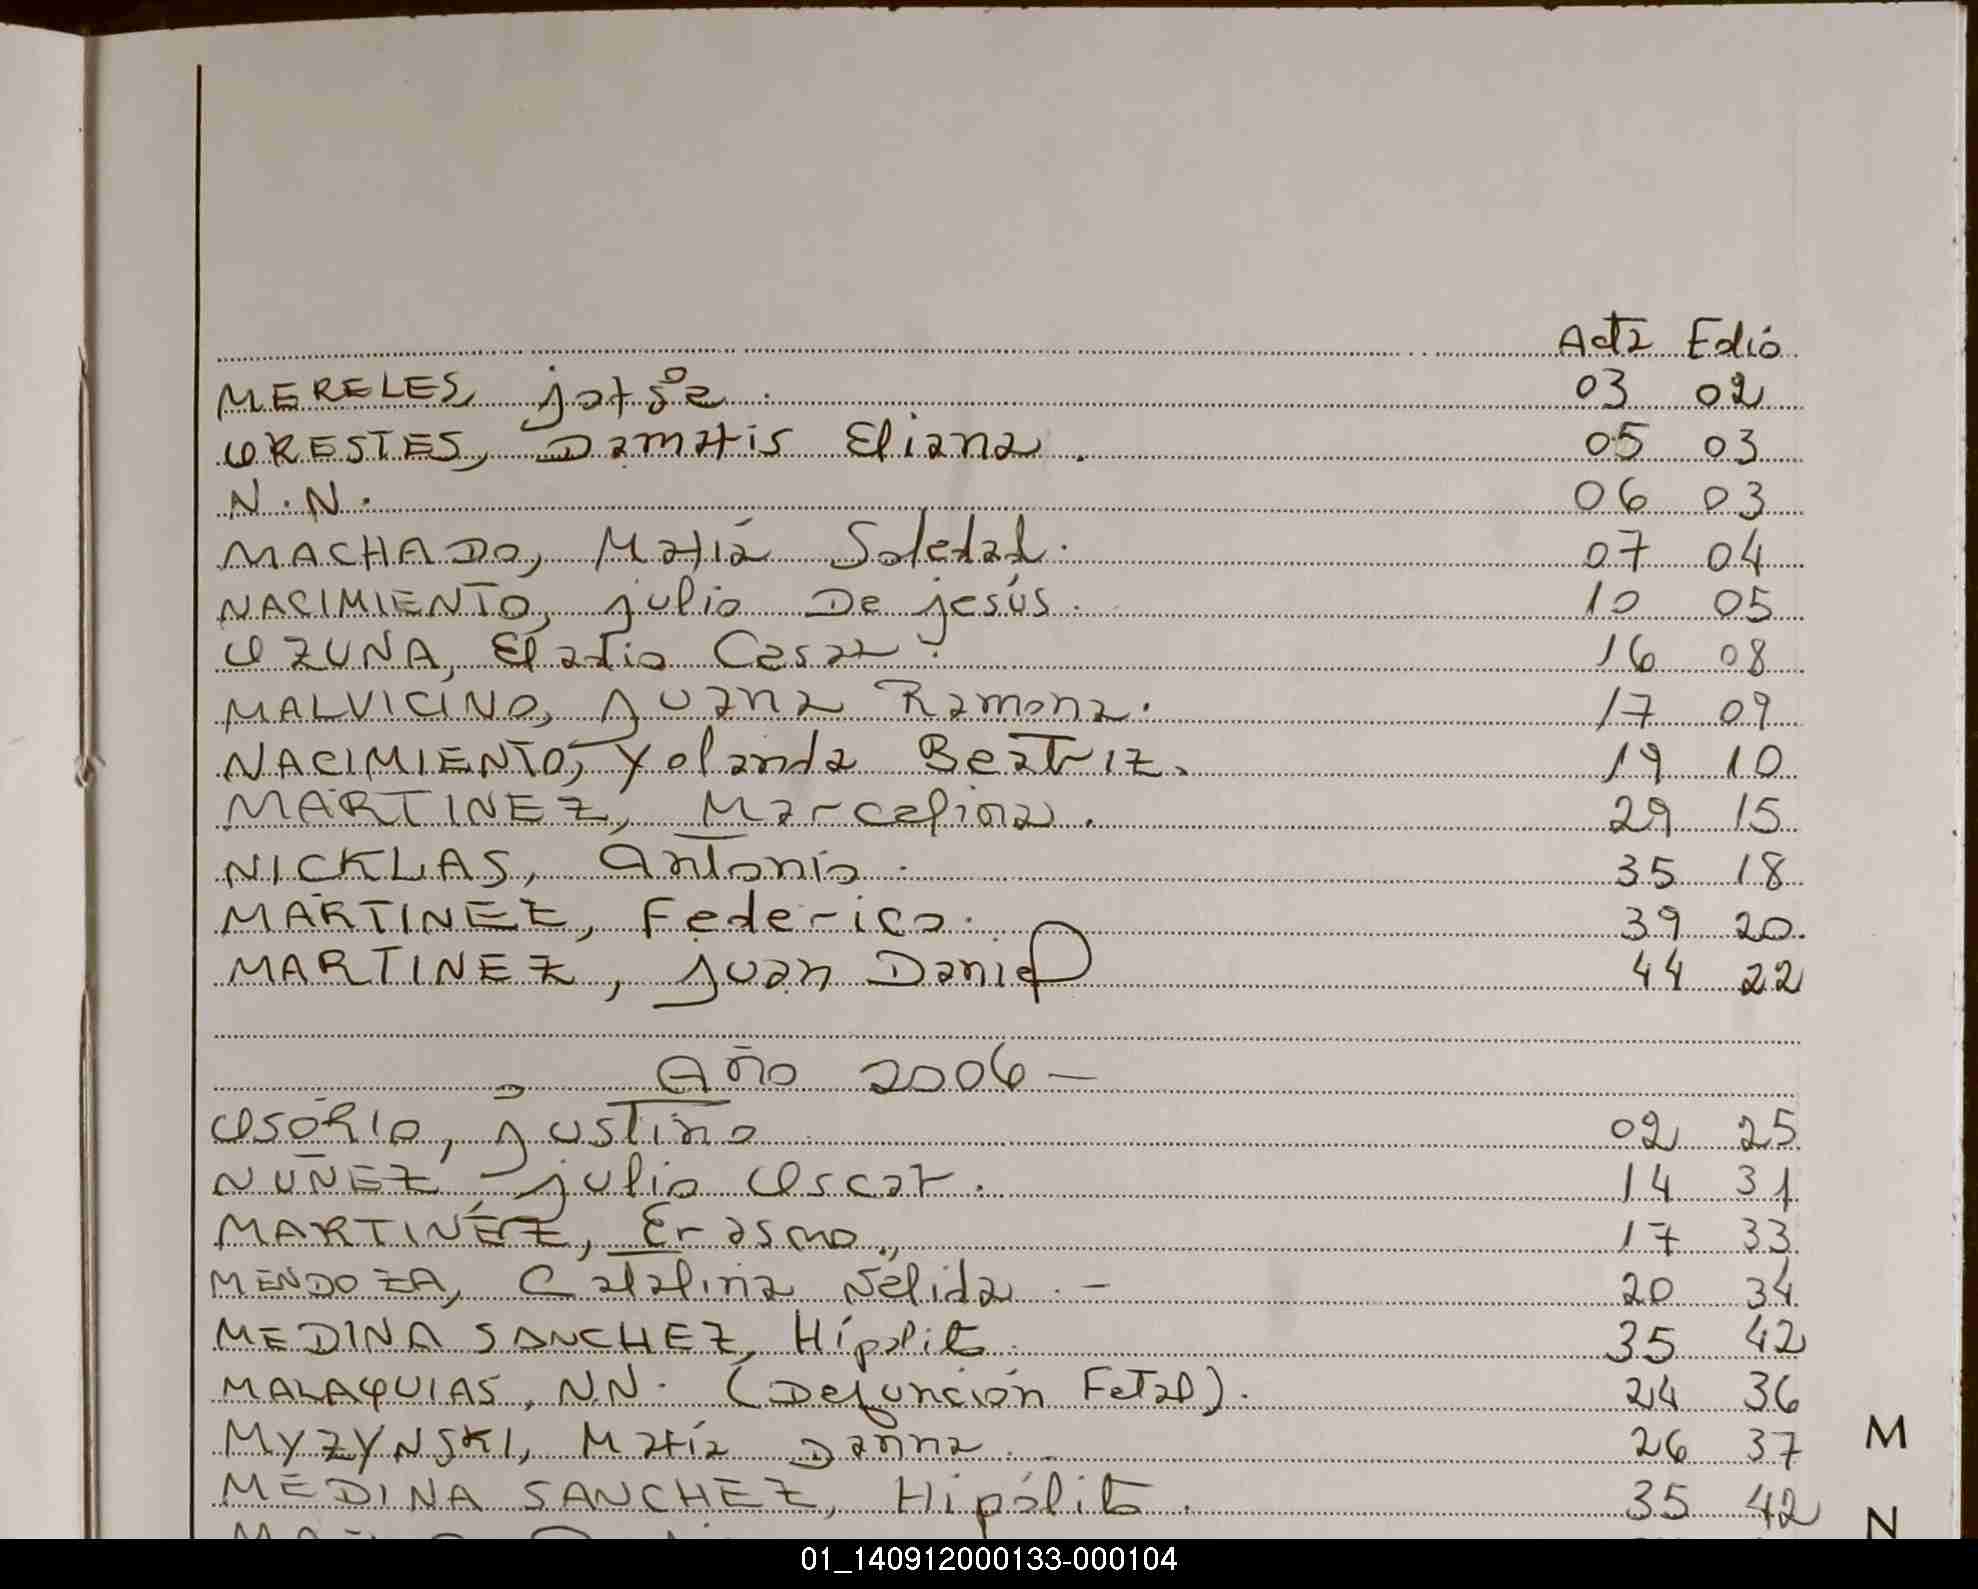 Acta Folio
MERELES, Jorge 03 02
ORESTES, Damaris Eliana. 05 03
N.N. 06 03
MACHADO, María Soledad. 07 04
NACIMIENTO, Julio De Jesús. 10 05
OZUNA, Eladio Cesar. 16 08
MALVICINO, Juana Ramona. 17 09
NACIMIENTO, Yolanda Beatriz. 19 10
MARTINEZ, Marcelina. 29 15
NICKLAS, Antonio. 35 18
MARTINEZ, Federico. 39 20.
MARTINEZ, Juan Daniel 44 22
Año 2006 —
OSORIO, Justino 02 25
NUÑEZ, Julio Oscar. 14 31
MARTINÉZ, Erasmo. 17 33
MENDOZA, Catalina Nélida. - 20 34
MEDINA SANCHEZ, Hípolito. 35 42
MALAQUIAS, N.N. (Defunción Fetal). 24 36
MYZYNSKI, María Danna. 26 37
MEDINA SANCHEZ, Hipólito. 35 42
M
N
01_140912000133-000104